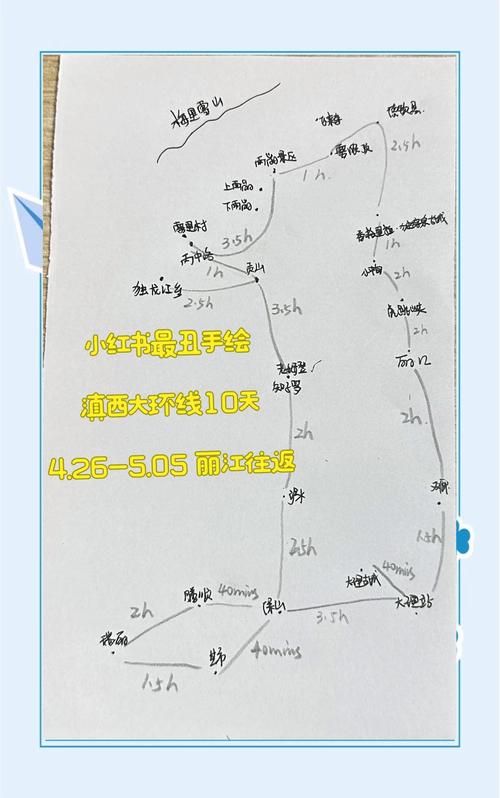 梅里雪山
飞来寺
德钦县
雾浓顶
雨崩景区
1h
2.5h
上雨崩
下雨崩
雾里村
3.5h
丙中洛
1h
贡山
独龙江乡
2.5h
3.5h
香格里拉·独克宗古城
1h
小中甸
2h
虎跳峡
2h
丽江
小红书最丑手绘
滇西大环线10天
4.26-5.05 丽江往返
老姆登
知子罗
2h
2h
泸水
沙溪
2.5h
1.5h
40mins
大理古城
腾冲
40mins
保山
3.5h
大理站
2h
瑞丽
芒市
40mins
1.5h